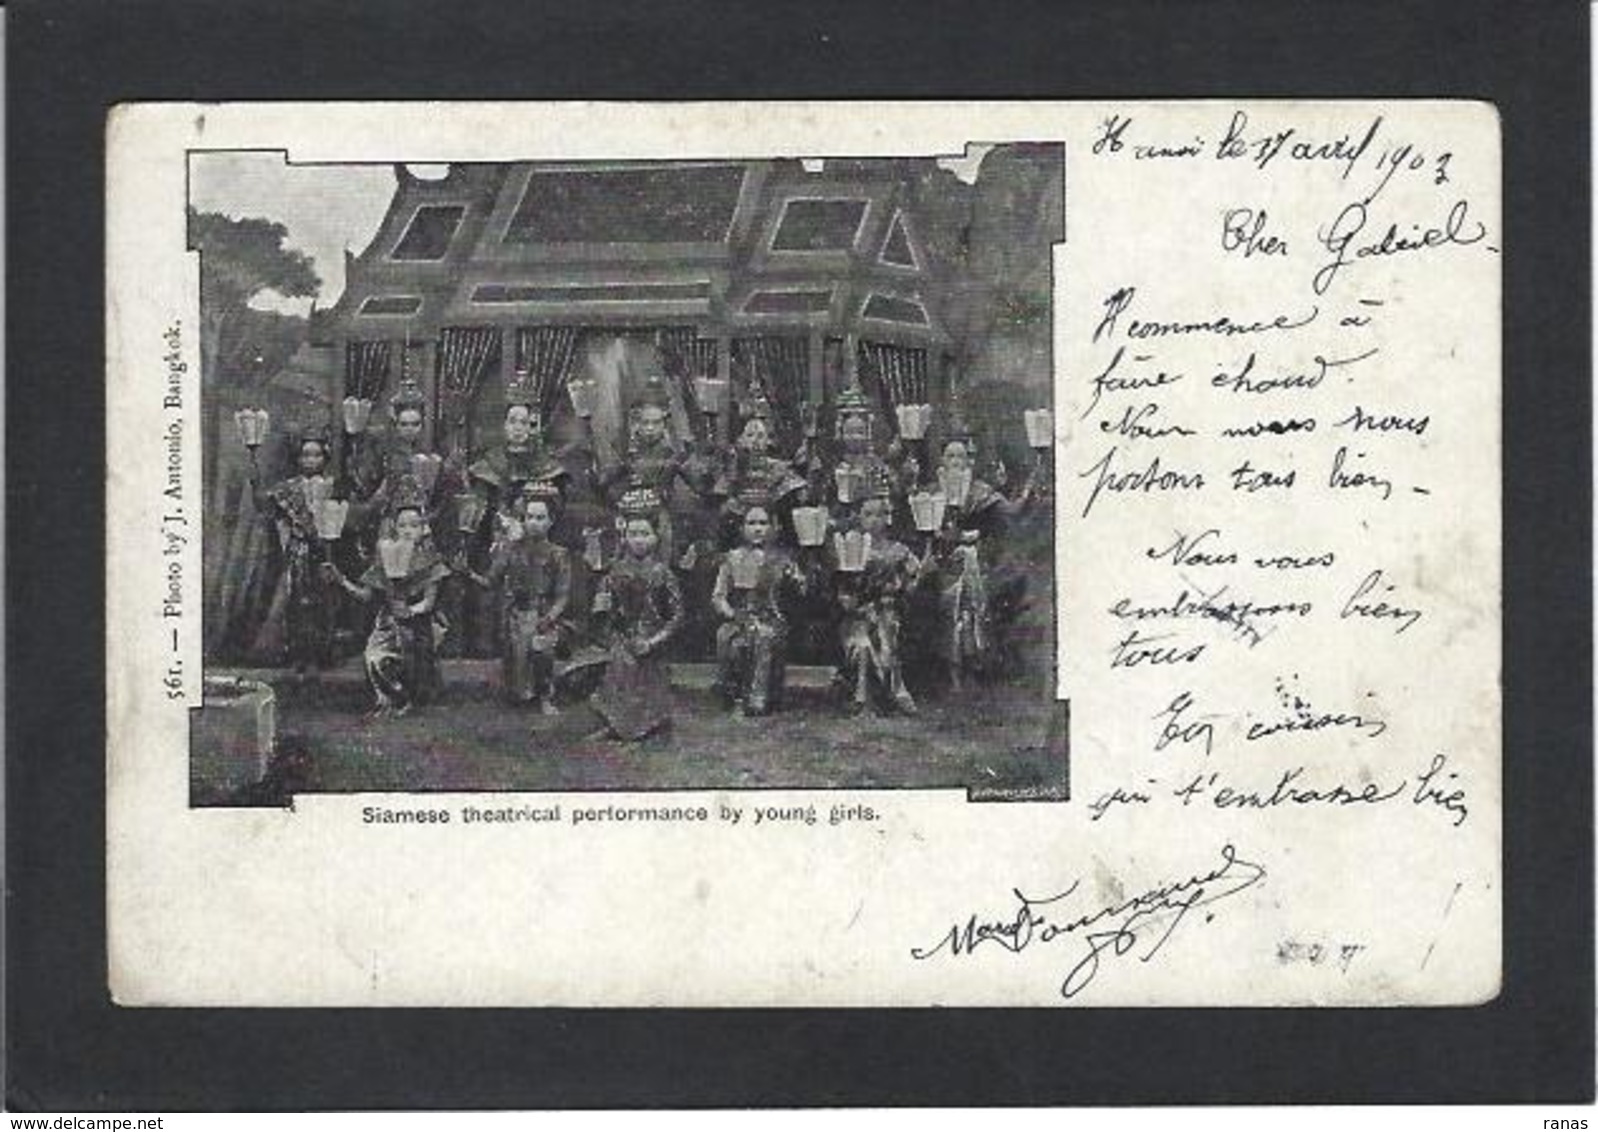 561. — Photo by J. Antonio, Bangkok.
Siamese theatrical performance by young girls.
Hanoi le 17 avril 1903
Cher Gabriel
Il commence à
faire chaud.
Nous nous
portons tous bien
Nous vous
embrassons bien
tous
Ton cousin
qui t'embrasse bien
www.delcampe.net
ranas